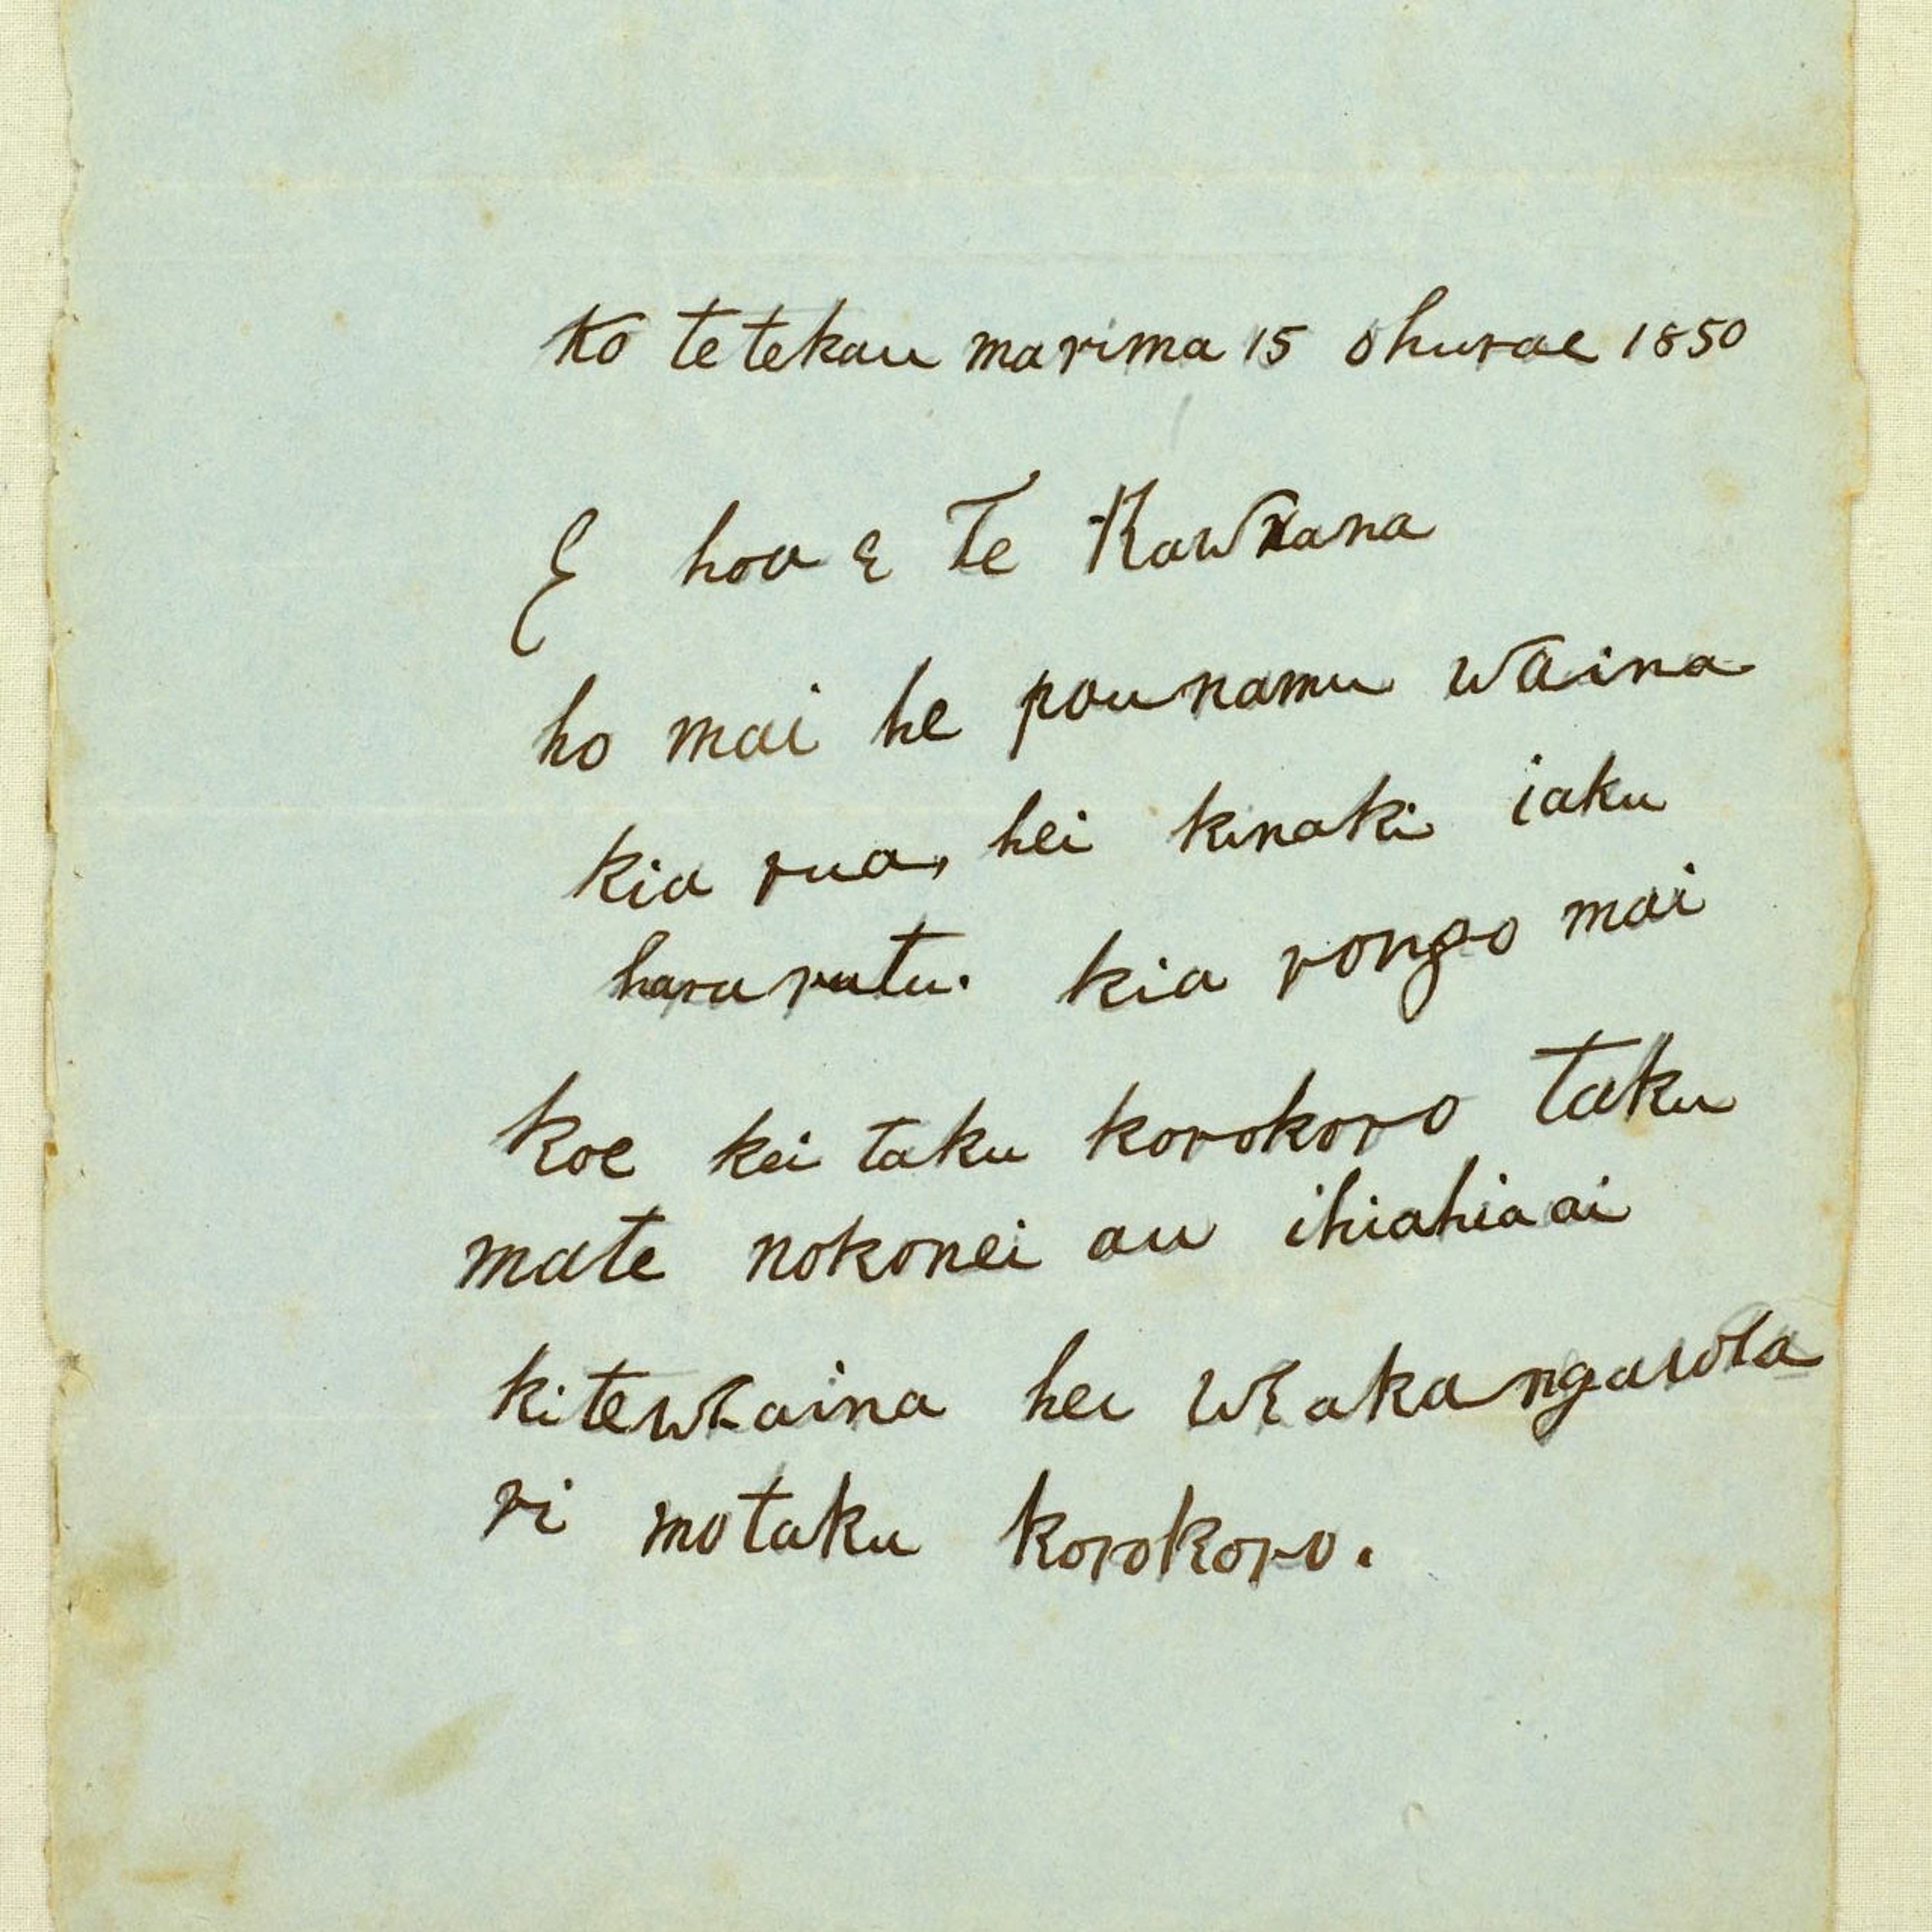 Ko te tekau marima 15 ohurae 1850
E hoa E Te Kawana
ho mai he pounamu waina
kia rua, hei kinaki iaku
hararutu. kia rongo mai
koe kei taku korokoro taku
mate nokonei au ihiahiaai
kitewaina hei Wakangawa
ri motaku korokoro.